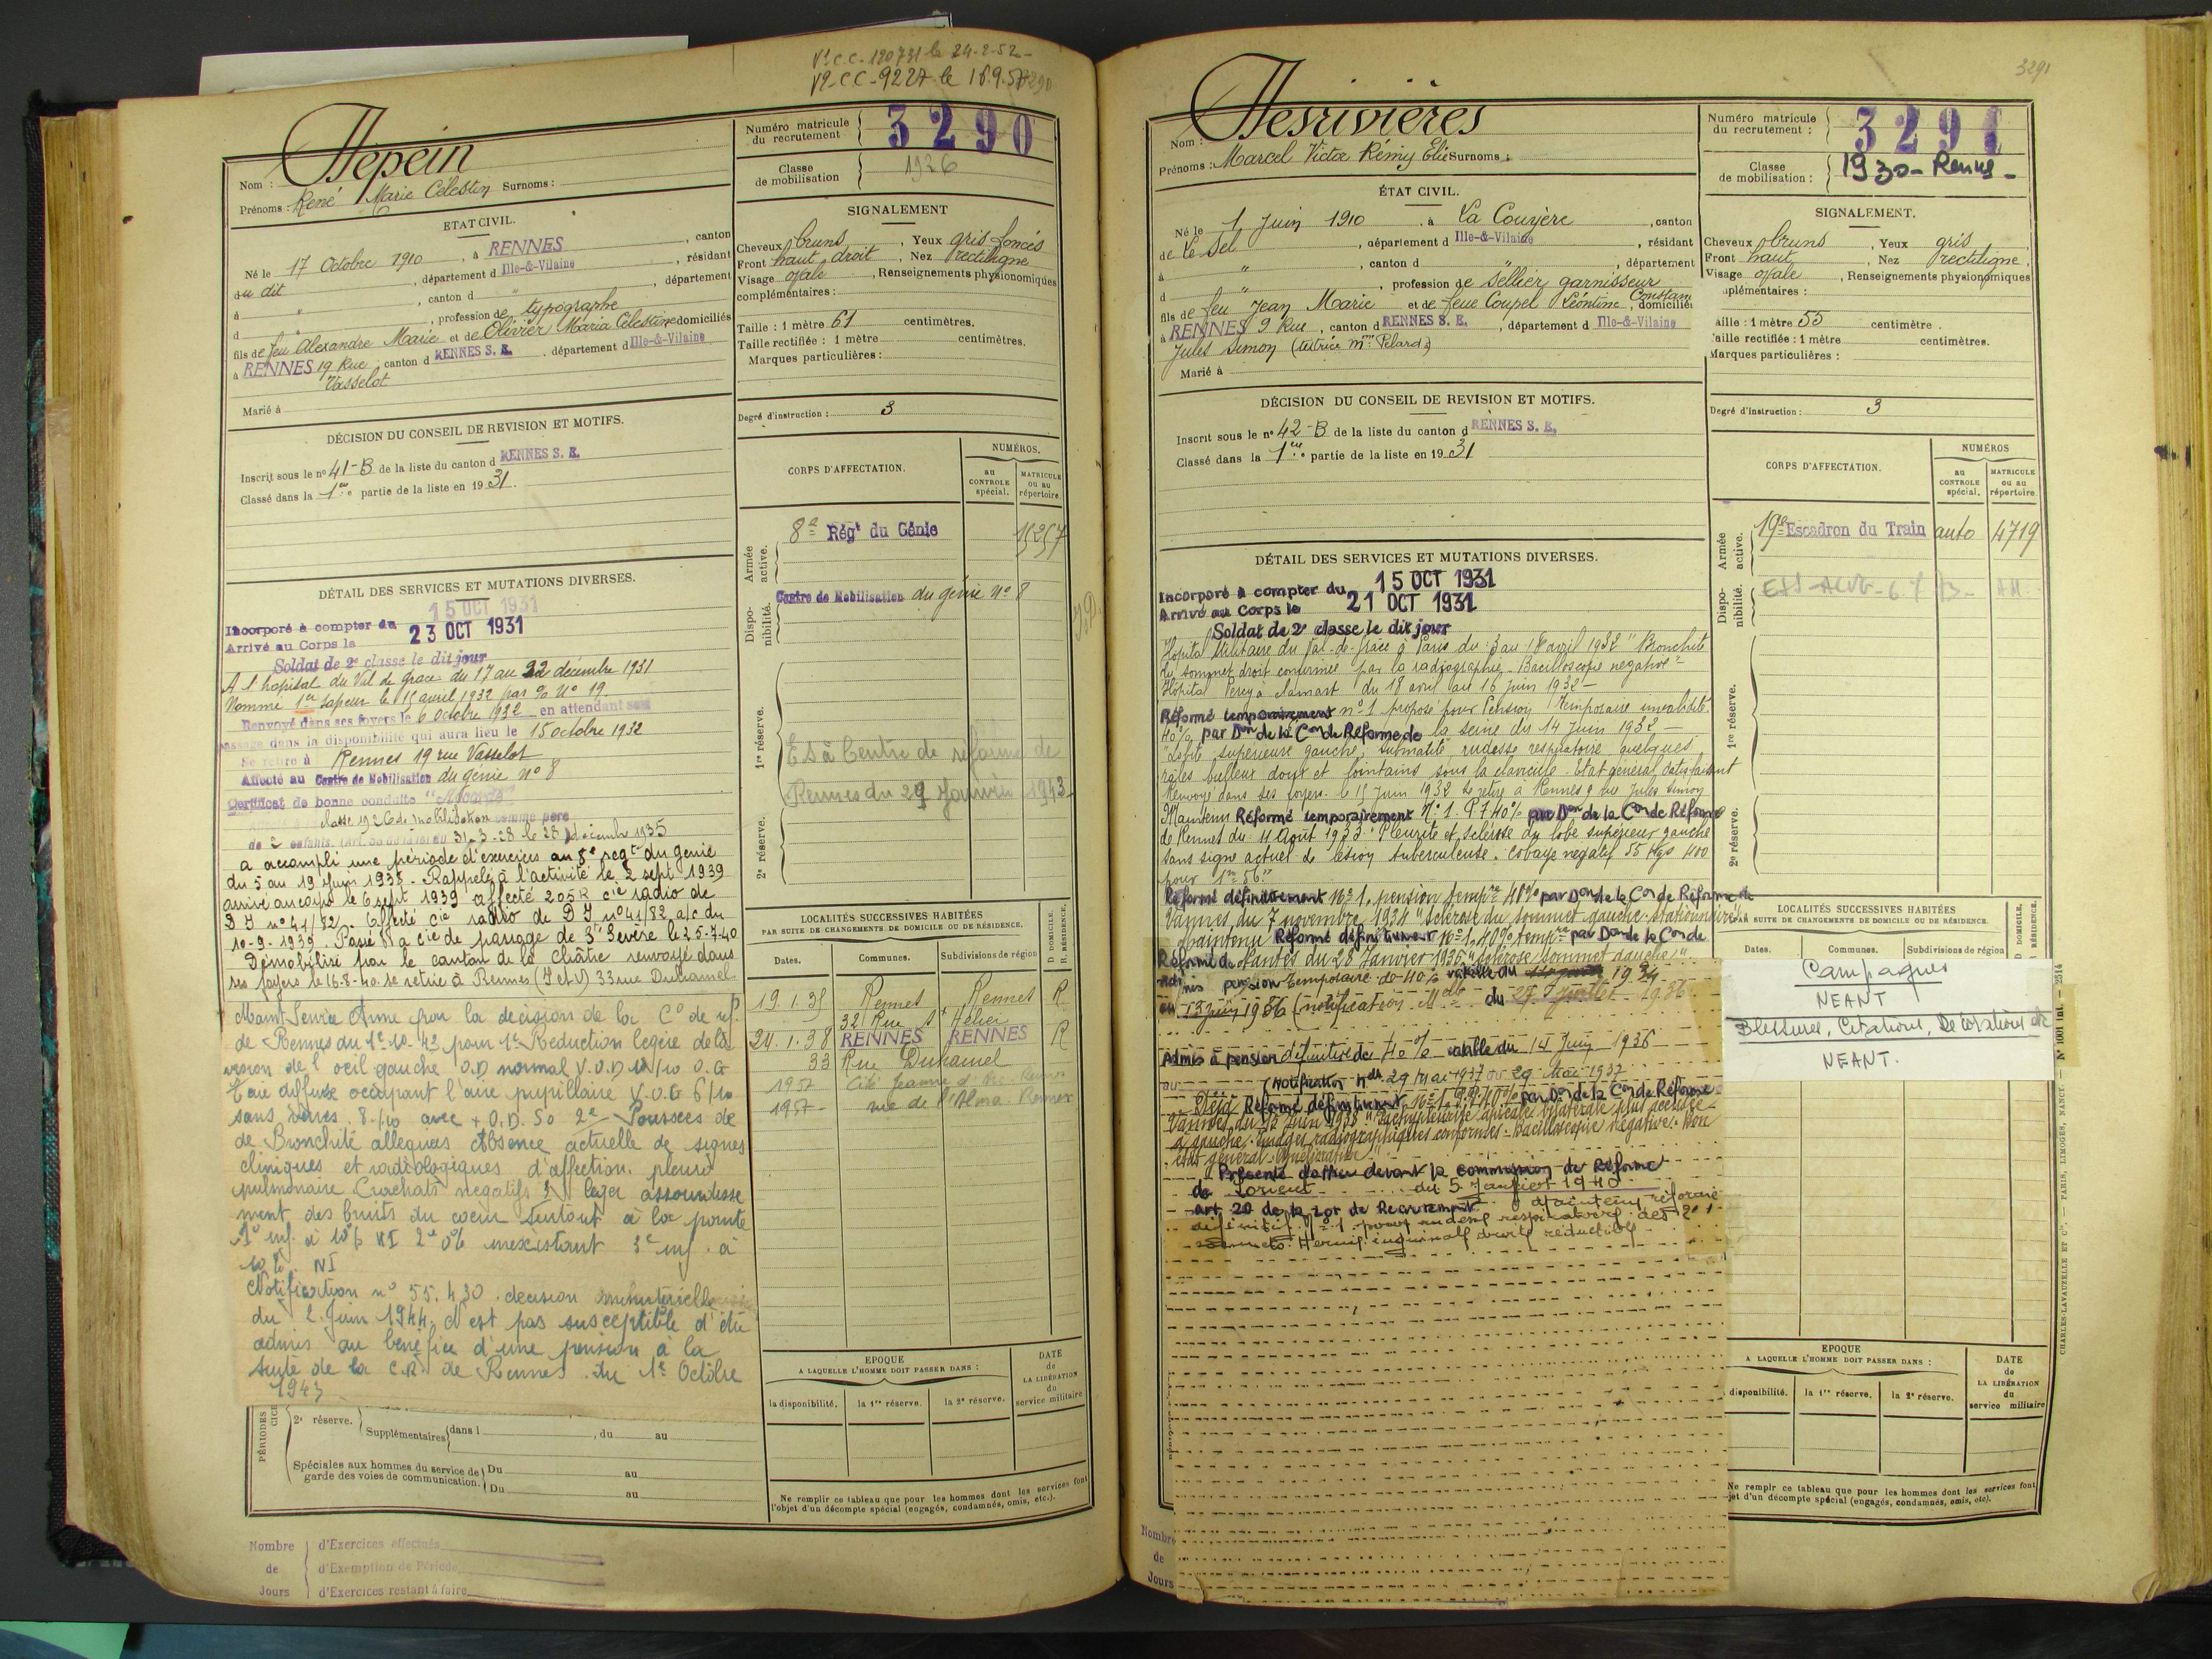 Vº C.C. 120731 le 24-2-52-
Vº C.C-9227 le 18.9.57
3290
Nom : Depein
Prénoms : René Marie Célestin Surnoms :
Numéro matricule du recrutement 3290
Classe de mobilisation 1926
ETAT CIVIL.
Né le 17 Octobre 1910, à RENNES, canton
du dit, département d Ille-&-Vilaine, résidant
à ", canton d ", département
d ", profession de typographe
fils de feu Alexandre Marie et de Olivier Maria Célestine domiciliés
à RENNES 19 Rue, canton d RENNES S. E., département d Ille-&-Vilaine
Vasselot
Marié à
SIGNALEMENT
Cheveux bruns, Yeux gris foncés
Front haut droit, Nez rectiligne
Visage ovale, Renseignements physionomiques
complémentaires :
Taille : 1 mètre 61 centimètres.
Taille rectifiée : 1 mètre centimètres.
Marques particulières :
Degré d'instruction : 3
DÉCISION DU CONSEIL DE REVISION ET MOTIFS.
Inscrit sous le nº 41-B de la liste du canton d RENNES S. E.
Classé dans la 1ère partie de la liste en 1931.
CORPS D'AFFECTATION.
NUMÉROS.
au CONTROLE spécial.
MATRICULE ou au répertoire.
Armée active.
8e Régt du Génie
Dispo-nibilité.
Centre de Mobilisation du génie nº 8
1re réserve.
Es à Centre de réforme de
Rennes du 29 Janvier 1943
2e réserve.
DÉTAIL DES SERVICES ET MUTATIONS DIVERSES.
Incorporé à compter du 15 OCT 1931
Arrivé au Corps le 23 OCT 1931
Soldat de 2e classe le dit jour
A l'hopital du Val de grace du 17 au 22 décembre 1931
Nommé 1er Sapeur le 15 avril 1932 par % Nº 19.
Renvoyé dans ses foyers le 6 octobre 1932 en attendant son
passage dans la disponibilité qui aura lieu le 15 octobre 1932
Se retire à Rennes 19 rue Vasselot
Affecté au Centre de Mobilisation du génie nº 8
Certificat de bonne conduite "Accordé"
classe 1926 de mobilisation comme père
de 2 enfants 31-3-28 le 28 décembre 1935
a accompli une période d'exercices au 8e regt du génie
du 5 au 19 Juin 1938. Rappelé à l'activité le 2 sept 1939
arrivé au corps le 6 sept 1939 affecté 205R cie radio de
D I nº 41/82. Affecté cie radio de D I nº 41/82 a/c du
10-9-1939. Passé à la cie de passage de St Sevère le 25-7-40
Démobilisé par le canton de la Châtre renvoyé dans
ses foyers le 16-8-40 se retire à Rennes (I et V) 33 rue Duhamel
Maint Service Armé par la decision de la Cº de ref.
de Rennes du 1er-10-43 pour 1º Reduction legère de la
vision de l'oeil gauche O.D normal V.O.D 10/10 O.G
Taie diffuse occupant l'aire pupillaire V.O.G 6/10
sans verres. 8/10 avec + 0.D. 50 2º Poussées de
de Bronchite alleguées Absence actuelle de signes
cliniques et radiologiques d'affection pleuro
pulmonaire Crachats negatifs 3º leger assourdisse
ment des bruits du coeur surtout à la pointe
1º inf. à 10% NI 2º 0% inexistant 3º inf. à
10%. NI
Notification nº 55.430. decision ministerielle
du 2 Juin 1944. N'est pas susceptible d'être
admis au bénéfice d'une pension à la
suite de la C.R. de Rennes du 1er Octobre
1943
LOCALITÉS SUCCESSIVES HABITÉES
PAR SUITE DE CHANGEMENTS DE DOMICILE OU DE RÉSIDENCE.
Dates. Communes. Subdivisions de région D DOMICILE. R. RÉSIDENCE.
19.1.35 Rennes Rennes R
32 Rue St Hélier
24.1.38 RENNES RENNES R
33 Rue Duhamel
1952 Cité Jeanne d'Arc Rennes
1957- rue de l'Alma Rennes
EPOQUE
A LAQUELLE L'HOMME DOIT PASSER DANS :
DATE de LA LIBÉRATION du service militaire
la disponibilité. la 1re réserve. la 2e réserve.
PÉRIODES
2e réserve. Supplémentaires dans l, du au
Spéciales aux hommes du service de garde des voies de communication. Du au
Du au
Ne remplir ce tableau que pour les hommes dont les services font
l'objet d'un décompte spécial (engagés, condamnés, omis, etc.).
Nombre de Jours
d'Exercices effectués
d'Exemption de Période
d'Exercices restant à faire
3291
Nom : Desrivières
Prénoms : Marcel Victor Rémy Elie Surnoms :
Numéro matricule du recrutement : 3291
Classe de mobilisation : 1930-Rennes-
ÉTAT CIVIL.
Né le 1 Juin 1910, à La Couyère, canton
de Le Sel, département d Ille-&-Vilaine, résidant
à ", canton d ", département
d ", profession de Sellier garnisseur
fils de feu Jean Marie et de feue Coupel Léontine Constan, domiciliés
à RENNES 9 Rue, canton d RENNES S. E., département d Ille-&-Vilaine
Jules Simon (tutrice Mme Pelard)
Marié à
SIGNALEMENT.
Cheveux bruns, Yeux gris
Front haut, Nez rectiligne,
Visage ovale, Renseignements physionomiques
plémentaires :
aille : 1 mètre 55 centimètre.
aille rectifiée : 1 mètre centimètres.
Marques particulières :
Degré d'instruction : 3
DÉCISION DU CONSEIL DE REVISION ET MOTIFS.
Inscrit sous le nº 42-B de la liste du canton d RENNES S. E.
Classé dans la 1ère partie de la liste en 1931
CORPS D'AFFECTATION.
NUMÉROS
au CONTROLE spécial.
MATRICULE ou au répertoire.
Armée active.
19e Escadron du Train auto 4719
Dispo-nibilité.
1re réserve.
2e réserve.
DÉTAIL DES SERVICES ET MUTATIONS DIVERSES.
Incorporé à compter du 15 OCT 1931
Arrivé au Corps le 21 OCT 1931
Soldat de 2e classe le dit jour
Hopital Militaire du Val-de-Grâce à Paris du 3 au 18 avril 1932 "Bronchite
du sommet droit confirmée par la radiographie. Bacilloscopie negative"
Hôpital Percy à Clamart du 18 avril au 16 juin 1932-
Réformé temporairement nº 1 proposé pour Pension Temporaire invalidité
40%, par Don de la Con de Réforme de la Seine du 14 Juin 1932-
"Lobite supérieure gauche, submatité rudesse respiratoire quelques
râles bulleux doux et lointains sous la clavicule. Etat général satisfaisant
Renvoyé dans ses foyers le 15 Juin 1932 Se retire à Rennes 9 rue Jules Simon
Maintenu Réformé temporairement Nº 1. P.T 40% par Don de la Con de Réforme
de Rennes du 11 Août 1933 "Pleurite et sclérose du lobe supérieur gauche
sans signe actuel de lésion tuberculeuse. Cobaye negatif 55 Kgs 400
pour 1m 56."
Réformé définitivement Nº 1, pension tempre 40% par Don de la Con de Réforme de
Vannes, du 7 novembre 1934 "Sclérose du sommet gauche stationnaire"
Maintenu Réformé définitivement Nº 1, 40% tempre par Don de la Con de
Réforme de Nantes du 28 Janvier 1936 "Sclérose sommet gauche"
Admis pension temporaire de 40% valable du 1934
au 13 juin 1936 (notification Melle du 27 Juillet 1936
Admis à pension définitive de 40% valable du 14 Juin 1936-
au (Notification Nelle 29 Mai 1937 29 Mai 1937
Déjà Réformé définitivement, Nº 1 P.D. 40% par Don de la Con de Réforme
Vannes, du 15 Juin 1938 "Pachypleurite apicale bilatérale plus accusée
à gauche. Images radiographiques conformes - Bacilloscopie négative. Bon
état général. Amélioration"
Présenté d'office devant la commission de Réforme
de Lorient du 5 Janvier 1940
art 20 de la Loi de Recrutement Maintenu réformé
définitif nº 1 pour rudesse respiratoire des 2
sommets. Hernie inguinale droite réductible
LOCALITÉS SUCCESSIVES HABITÉES
PAR SUITE DE CHANGEMENTS DE DOMICILE OU DE RÉSIDENCE.
Dates. Communes. Subdivisions de région D DOMICILE. R RÉSIDENCE.
Campagnes
NEANT
Blessures, Citations, Décorations etc
NEANT.
EPOQUE
A LAQUELLE L'HOMME DOIT PASSER DANS :
DATE de LA LIBÉRATION du service militaire
disponibilité. la 1re réserve. la 2e réserve.
Ne remplir ce tableau que pour les hommes dont les services font
jet d'un décompte spécial (engagés, condamnés, omis, etc).
CHARLES-LAVAUZELLE ET Cie. — PARIS, LIMOGES, NANCY. — Nº 1001 int. — 2514
Nombre
de
Jours